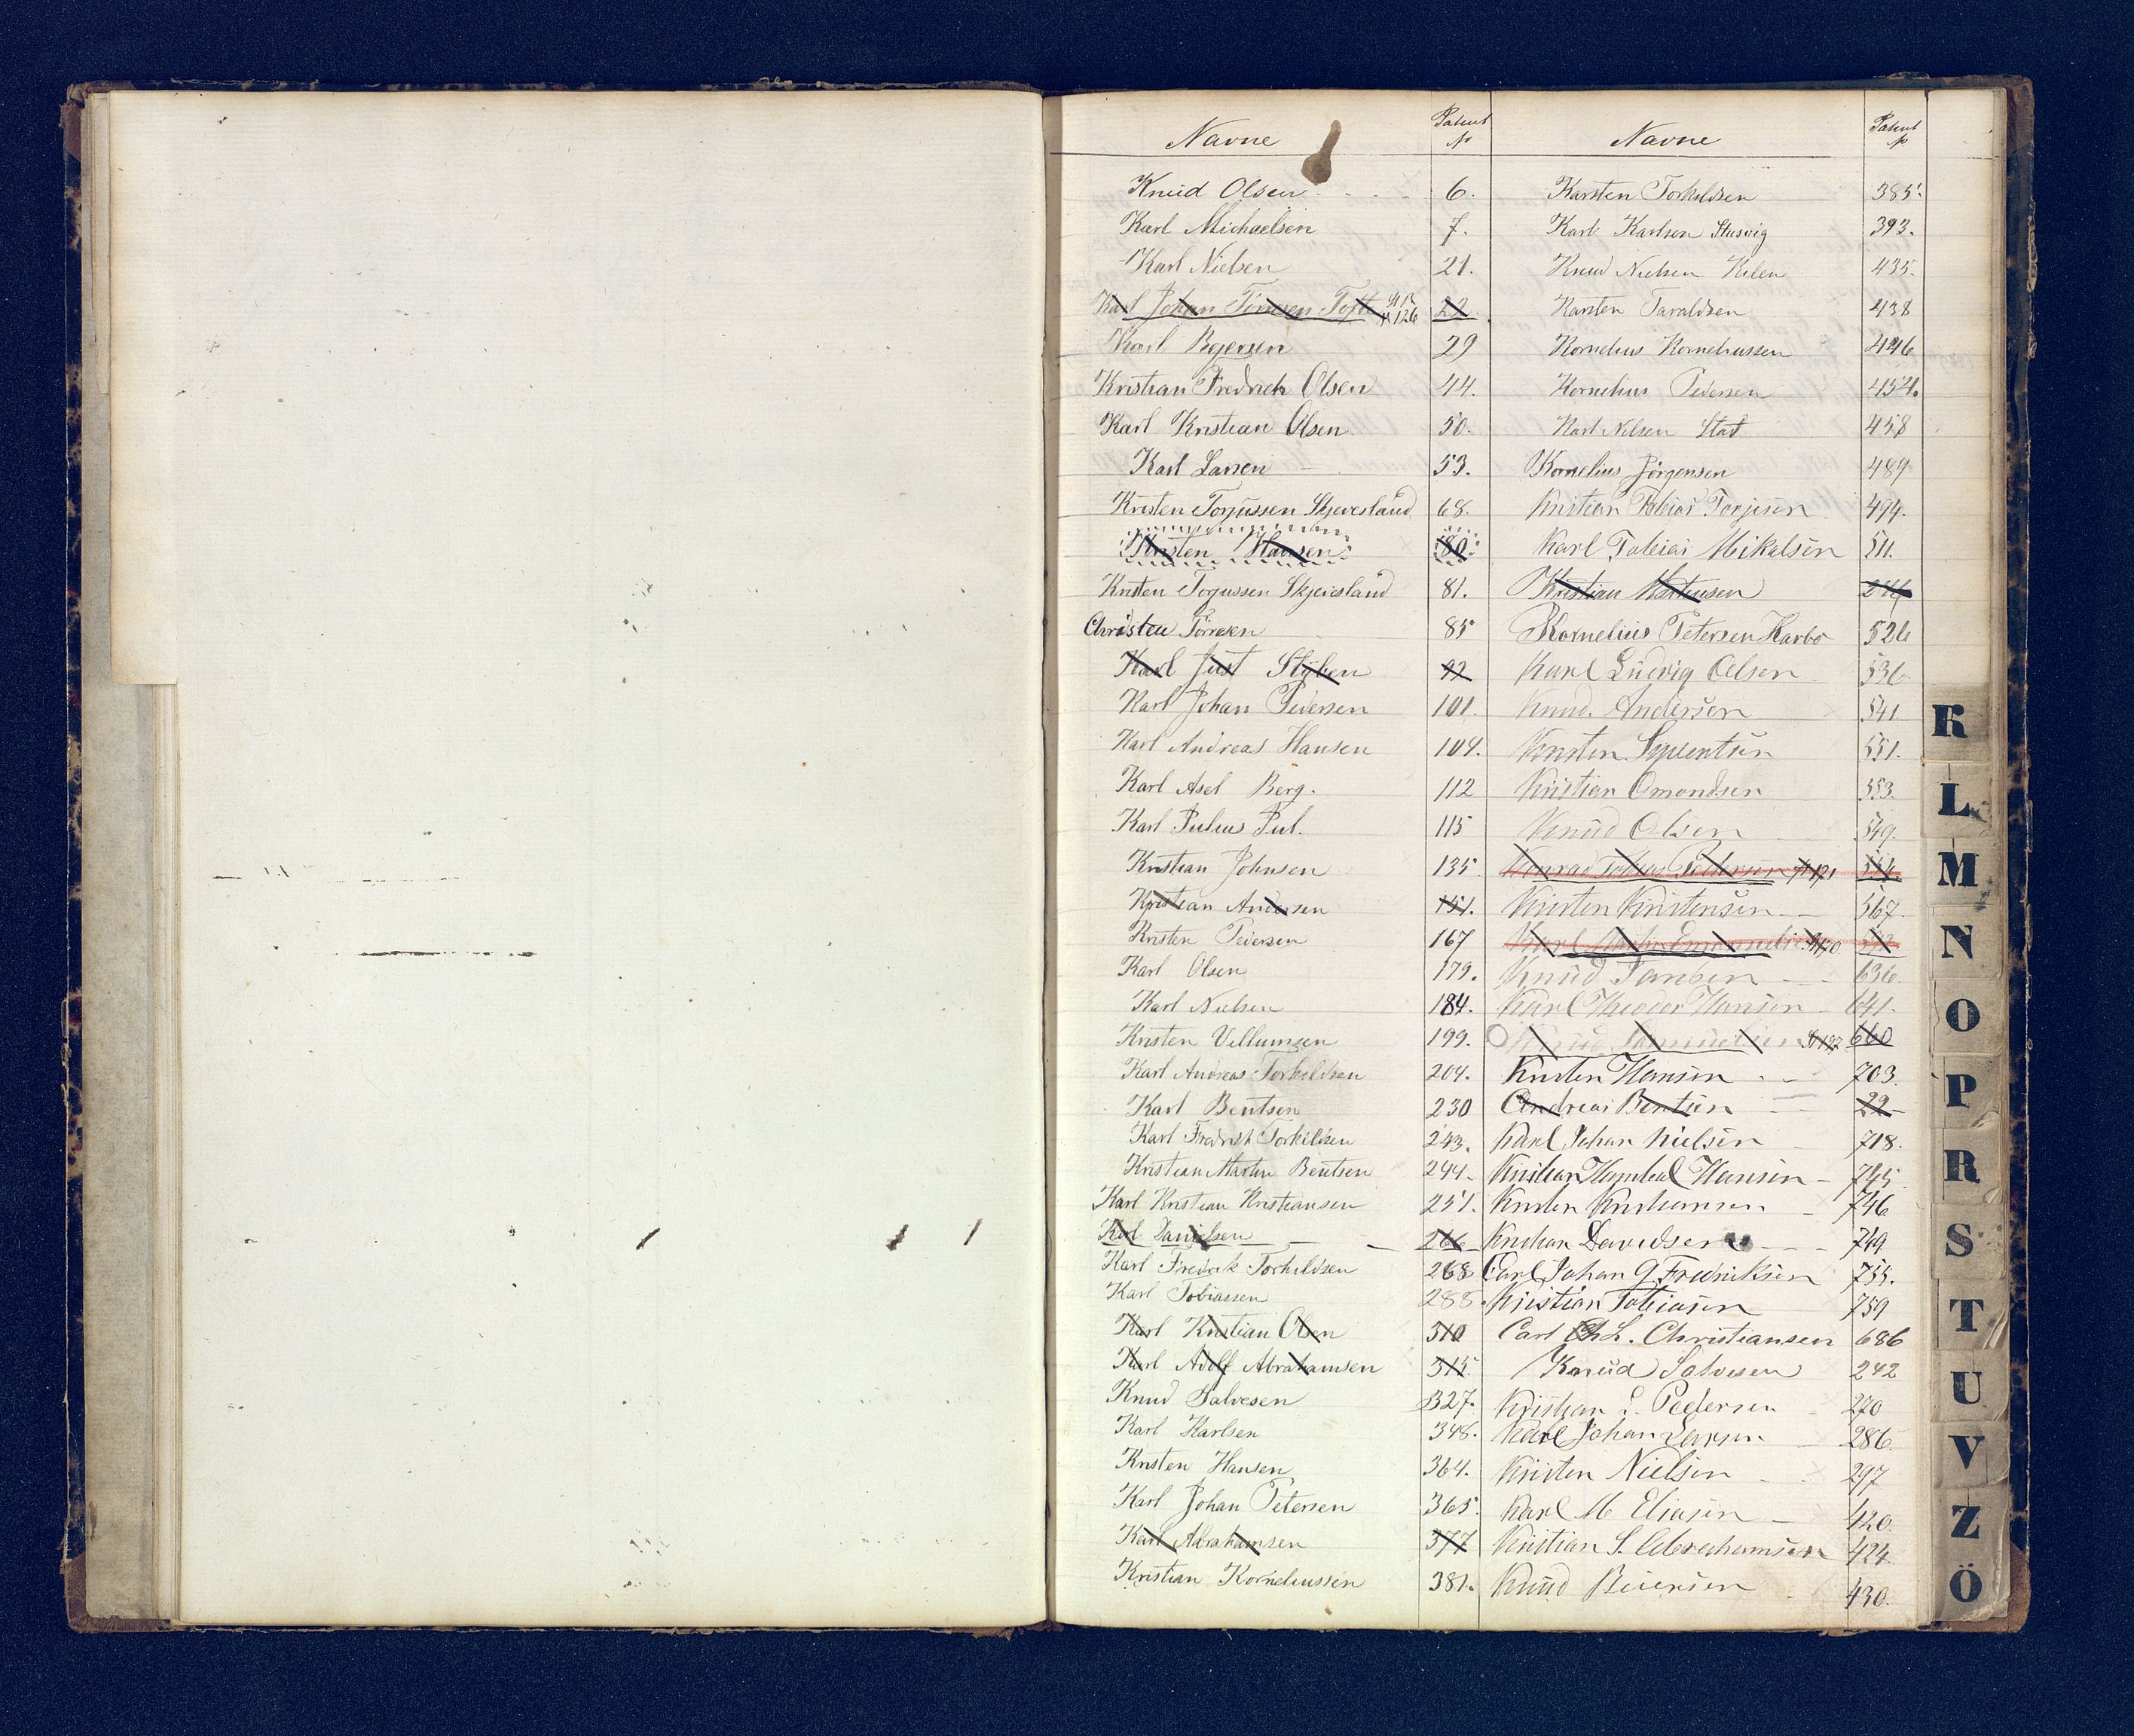 Navne Patent №
Knud Olsen 6.
Karl Michaelsen 7.
Karl Nielsen 21.
Karl Johan Tönnesen Toft 22
Karl Bejersen 29
Kristian Fredrich Olsen 44.
Karl Kristian Olsen 50.
Karl Larsen 53.
Kristen Torjussen Skjevesland 68.
Kristen Hansen 80.
Kristen Torjussen Skjeiesland 81.
Christen Tönnesen 85
Karl Just Stÿben 92
Karl Johan Pedersen 101.
Karl Andreas Hansen 104.
Karl Axel Berg. 112
Karl Julius Jul. 115
Kristian Johnsen 135
Kristian Andersen 151.
Kristen Pedersen 167
Karl Olsen 179.
Karl Nielsen 184.
Kristen Vellumsen 199.
Karl Andreas Torkildsen 204.
Karl Bentsen 230
Karl Fredrik Torkildsen 243.
Kristian Martin Bentsen 244.
Karl Kristian Kristiansen 251.
Karl Danielsen 266
Karl Fredrik Torkildsen 268
Karl Tobiassen 288
Karl Kristian Olsen 310
Karl Adolf Abrahamsen 315.
Knud Salvesen 327.
Karl Karlsen 348.
Kristen Hansen 364.
Karl Johan Petersen 365.
Karl Abrahamsen 377
Kristian Korneliussen 381.
Navne Patent №
Karsten Torkildsen 385.
Karl Karlsen 393.
Knud Nielsen Kilen 435.
Karsten Taraldsen 438
Kornelius Korneliussen 446
Kornelius Pedersen 454.
Karl Nilsen 458
Kornelius Jörgensen 489
Kristian Tobias Torjusen 494.
Karl Tobias Mikalsen 511.
Kristian Martinsen 244
Kornelius Petersen Karbo 526
Karl Ludvig Olsen 536
Knud Andersen 541
Kristen Syvertsen 551.
Kristian Omondsen 553.
Knud Olsen 549.
Konrad Tobias Pedersen
Kristen Kristensen 567.
Karl Martin
Knud 636
Karl Theodor Hansen 641.
Knud Samuelsen 660
Kristen Hansen 703.
Andreas Bentsen 22
Karl Johan Nielsen 718.
Kristian Hansen 745
Kristen Kristiansen 746
Kristian Davidsen 749
Carl Johan G Fredriksen 755.
Kristian Tobiasen 759
Carl Ch L. Christiansen 686
Knud Salvesen 242
Kristian L. Pedersen 270
Karl Johan Larsen 286.
Kristen Nielsen 297
Karl M Eliasen 420.
Kristian S. Abrahamsen 424
Knud Beiersen 430.
K
L
M
N
O
P
R
S
T
U
V
Z
Ö